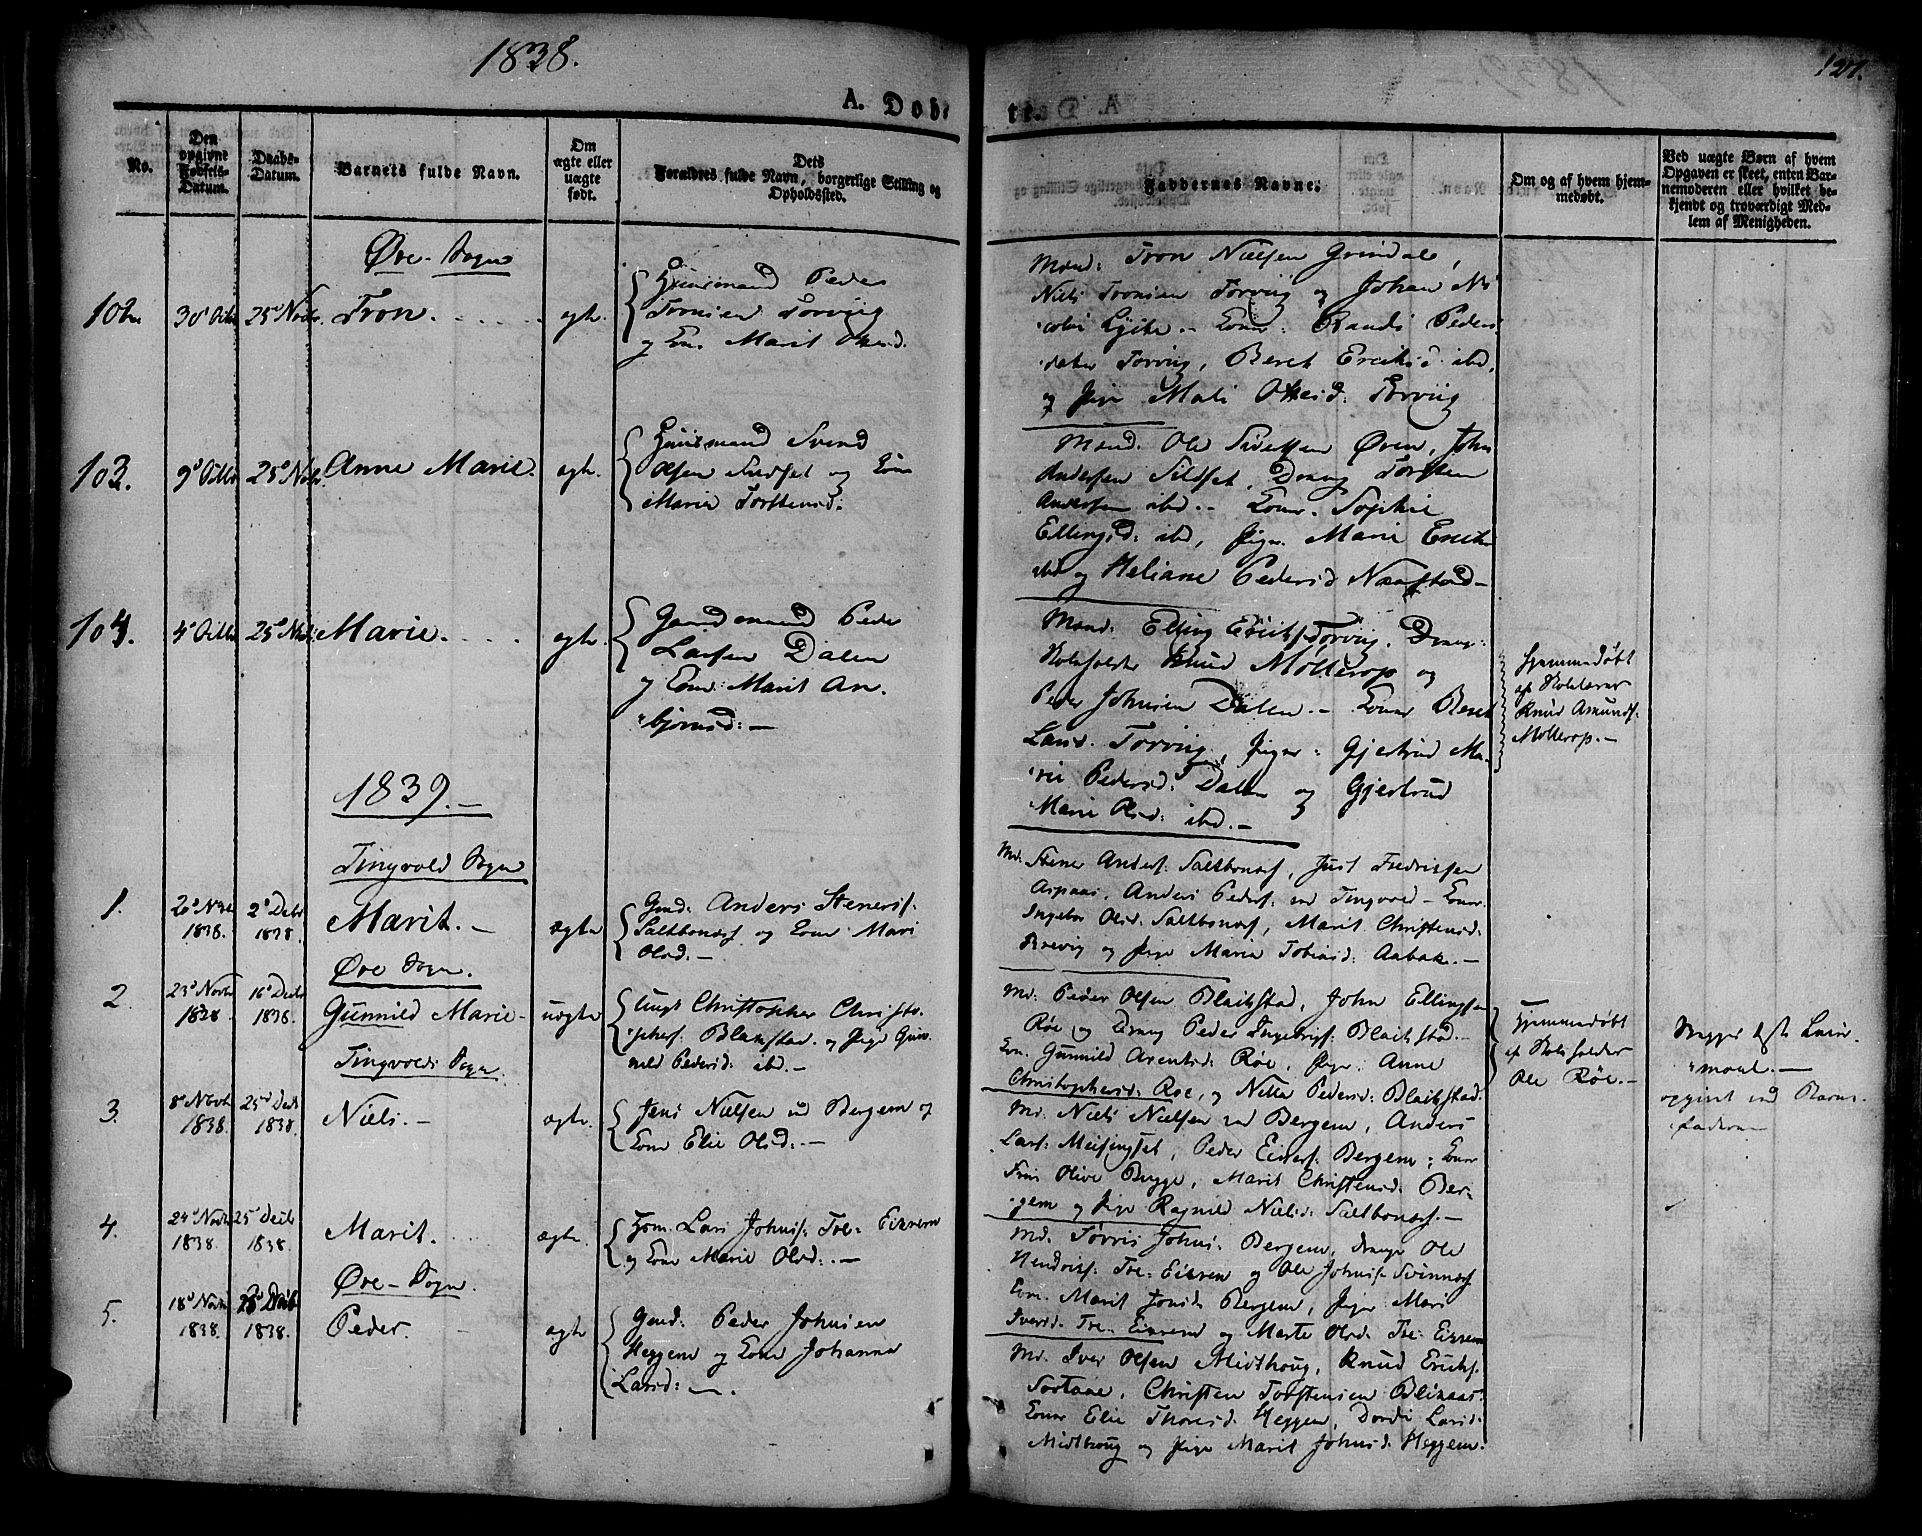 1838.
121.
A. Døbte.
No.
Den opgivne Fødsels-Datum.
Daabs-Datum.
Barnets fulde Navn.
Om ægte eller uægte født.
Dets Forældres fulde Navn, borgerlige Stilling og Opholdssted.
Faddernes Navne.
Om og af hvem hjemmedøbt.
Ved uægte Børn af hvem
Opgaven er skeet, enten Bar-
nemoderen eller hvilket be-
kjendt og troværdigt Med-
lem af Menigheden.
Øre Sogn
102
25 Novbr.
Tron.
Huusmand Peder
Tronsen Torvig
og Kone Marit
Mænd: Tron Nielsen Grimdal,
Niels Tronsen Torvig og Johan Ni-
Koner: Randi Peders
datter Torvig, Beret Ericksd. ibd,
og Pige Mali Torvig
103.
25 Novbr.
Anne Marie.
ægte.
Huusmand Svend
Olsen og Kone
Maria Torstensd:
Mænd. Ole Sivertsen Øren, John
Andersen Sildset, Dreng Torsten
Andersen ibd. - Koner. Sophie
Ellingsd: ibd, Piger. Marie Ericks
ibd og Heliane Pedersd Næsstad -
104.
25 Novbr.
Marie.
ægte.
Gaardmand Peder
Larsen Dalen
og Kone: Marit An-
bjørnsd: -
Mænd: Elling Ericks. Torvig. Dreng:
Skoleholder Knud Møllerop og
Peder Johnsen Dalen. - Koner Beret
Larsd. Torvig, Piger: Gjertrud Ma-
rie Pedersd. Dalen og Gjertrud
Marie Olsd: ibd. -
Hjemmedøbt
af Skolelærer
Knud Asmunds.
Møllerop. -
1839. -
Tingvold Sogn
1.
26 Novbr
1838.
2 Decbr
1838.
Marit. -
ægte
Gmd: Anders Steners.
Saltbonæs og Kone Mari
Olsd. -
Md. Stener Anders. Saltbonæs, Just Fredrikssen
Aspaas, Anders Peders. ved Tingvold - Koner.
Ingebor Olsd. Saltbonæs, Marit Christensd:
Brevig og Pige Maria Tobiasd: Aabak. -
Øre Sogn.
2
23 Novbr
1838
16 Decbr
1838.
Gunnild Marie -
uægte
Ungk Christopher Christo-
phers. Blakstad. og Pige Gun-
nild Pedersd. ibd. -
Md. Peder Olsen Blakstad, John Ellingsen
Røe og Dreng Peder Ingebrigts. Blakstad. -
Kon. Gunnild Arentsd: Røe, Piger: Anne
Christophersd: Røe, og Nille Pedersd: Blakstad.
Hjemmedøbt
af Skoleholder
Ole Røe. -
Begges 1ste Leier-
maal. -
opgivet ved Barne-
faderen
Tingvolds Sogn.
3.
8 Novbr
1838.
25 Decbr
1838.
Niels. -
ægte.
Jens Nielsen ved Bergem og
Kone Elie Olsd. -
Md. Niels Nielsen ved Bergem, Anders
Lars. Meisingset, Peder Einers. Bergem; Koner
Frue Olive Brygge, Marit Christensd: Ber-
gem og Pige Ragnild Nielsd: Saltbonæs. -
4.
24 Novbr
1838.
25 Decbr
1838.
Marit.
ægte.
Hsm. Lars Johns. Tre-Eikrem
og Kone Marie Olsd: -
Md. Torris Johns. Bergem, Drenge Ole
Hendrics. Tre-Eikrem og Ole Johns. Svinnæs
Kon. Marit Jonsd. Bergem, Piger Mari
Iversd. Tre-Eikrem og Marte Olsd. Tre-Eikrem
Øre-Sogn.
5.
18 Novbr
1838.
1838.
Peder.
ægte
Gmd: Peder Johnsen
Heggem og Kone Johanna
Larsd: -.
Md. Iver Olsen Midthoug, Knud Ericks.
Christen Torstensen Blikaas.
Koner Elie Thoresd. Heggem, Dordi Larsd.
Midthoug og Pige Marit Johnsd. Heggem.